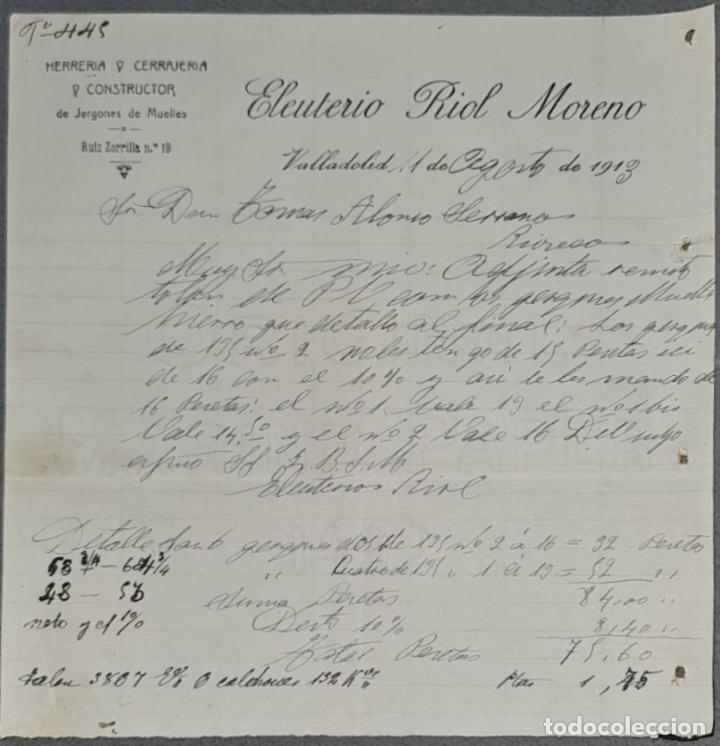 Nº 445
HERRERIA Y CERRAJERIA
Y CONSTRUCTOR
de Jergones de Muelles
Ruiz Zorrilla n.º 19
Eleuterio Riol Moreno
Valladolid, 11 de Agosto de 1913
Sr Don Tomas Alonso Serrano
Rioseco
Muy Sr mio: Adjunto remito
talon de PV con los gergones Muelles
hierro que detallo al final: Los gergones
de 135 nº 2 no les tengo de 15 Pesetas si
de 16 con el 10% y asi se les mando de
16 Pesetas: el nº 1 vale 19 el nº 1 bis
Vale 14,50 y el nº 2 Vale 16 Del suyo
afmo SS Q B S M
Eleuterio Riol
Detalle Son 6 gergones dos de 135 nº 2 á 16 = 32 Pesetas
" Cuatro de 135 " 1 á 13 = 52 "
Suma Pesetas 84,00 "
Descto 10% 8,40 "
Total Pesetas 75,60
68 3/4 — 68 4 3/4
48 — 56
neto y el 10%
Talon 3807 6 colchones 132 Kos
Ptas 1,75
todocoleccion